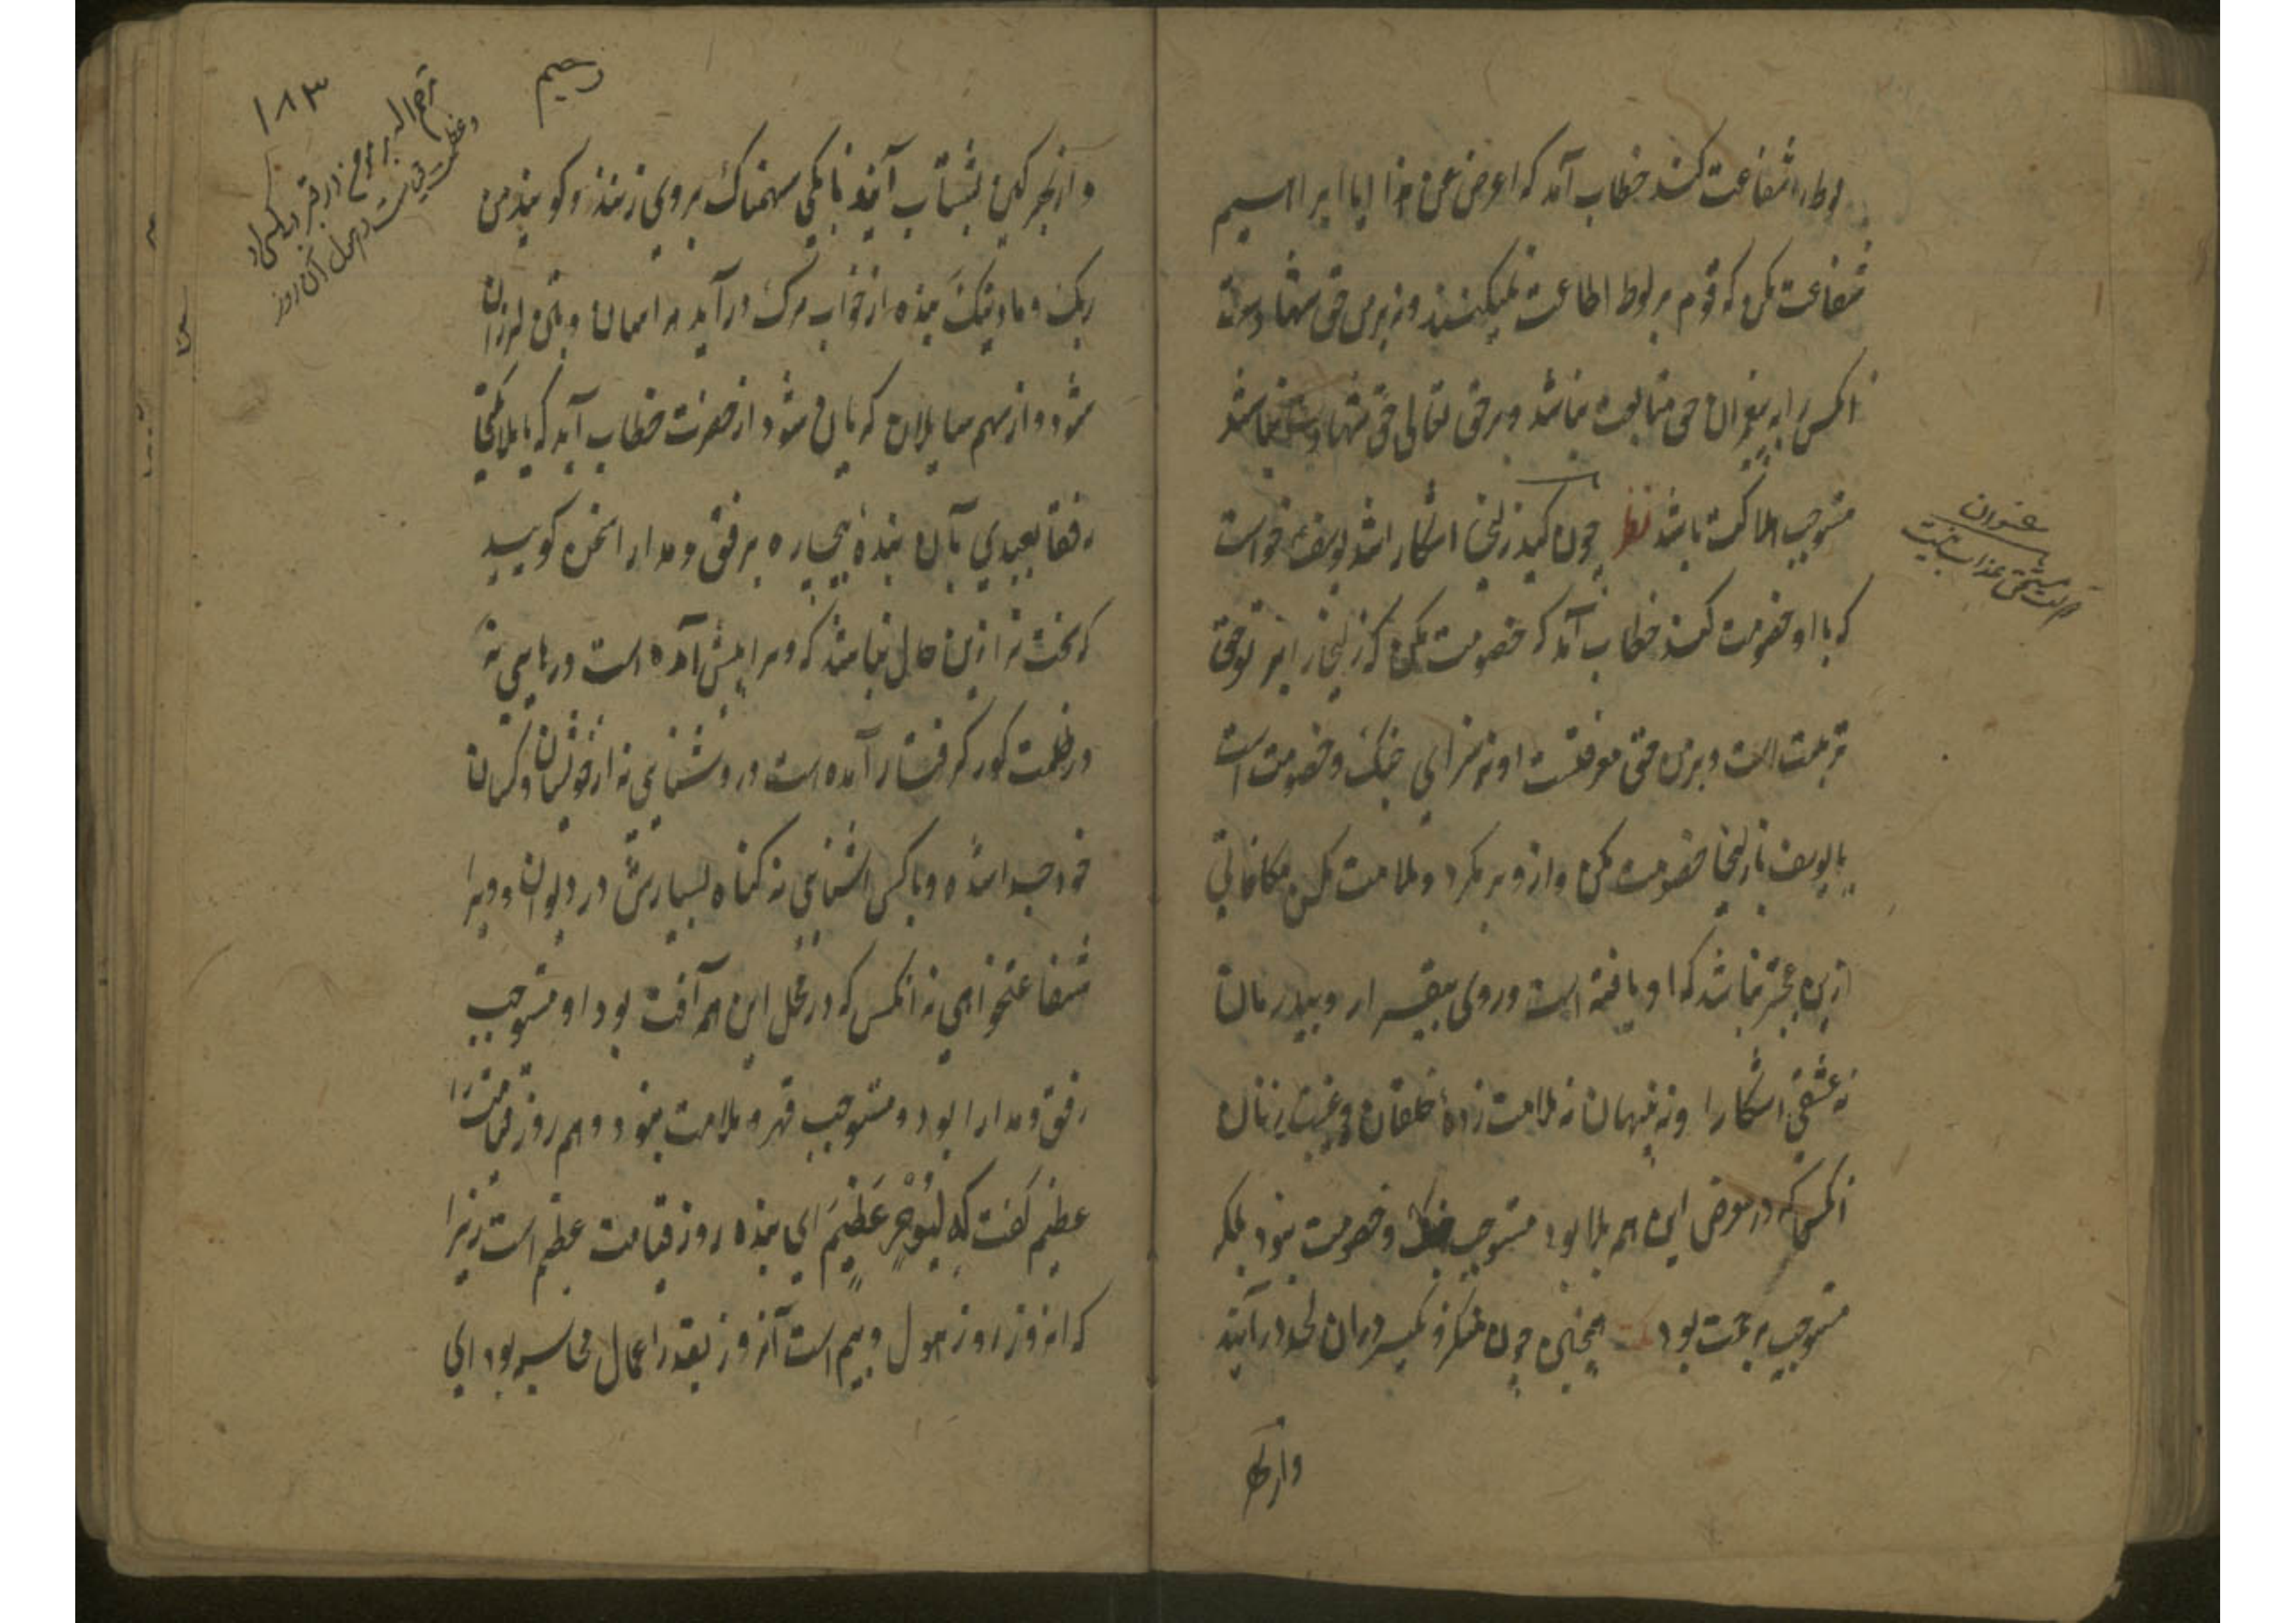 لوط را شفاعت کند خطاب آمد که اعرض عن هذا ای ابراهیم
شفاعت مکن که قوم مر لوط اطاعت نمیکنند و نه بر من حق شهادت
انکس را به پیغمبران حق متابعت نباشد و بر حق تعالی حق شهادت نباشد
مستوجب هلاکت باشد نظر چون کید زلیخا اشکارا شد یوسف خواست
که با او خصومت کند خطاب آمد که خصومت مکن که زلیخا را بر تو حق
تربیت است و بر من حق معرفتست او نه سزای جنک و خصومت است
یا یوسف با زلیخا خصومت مکن و از و بر مکرد و ملامت مکن مکافاتی
ازین بتر نباشد که او یافته است و روی بیقرار و بیدرمان
نه عشقی اشکارا و نه پنهان نه ملامت زده خلقان و غیبت زنان
انکس که در معرض این همه بلا بود مستوجب جنک و خصومت نبود بلکه
مستوجب مرحمت بود همچنین چون منکر و نکیر دران لحد درآیند
عنوان
مستحق عذاب نیست
۱۸۳
رحیم
بشتاب آیند بانکی سهمناک بر وی زنند و کویند من
ربک و ما دینک بنده از خواب مرک درآید هراسان و تن لرزان
شود و از سهم سایلان کریان شود از حضرت خطاب آید که یا ملائکتی
رفقا بعبدی بآن بنده بیچاره برفق و مدارا سخن کویید
که سخت تر ازین حال نباشد که ویرا پیش آمده است و رهایی نه
در ظلمت کور کرفتار آمده است و روشنایی نه از خویشان و کسان
خود جدا شده و با کس اشنایی نه کناه بسیارش در دیوان و ویرا
شفاعتخواهی نه انکس که در محل این همه آفت بود او مستوجب
رفق و مدارا بود و مستوجب قهر و ملامت نبود و هم روز قیامت را
عظیم کفت که لیوم عظیم ای بنده روز قیامت عظیم است زیرا
که انروز روز هول و بیم است آنروز بقدر اعمال محاسبه بود ای